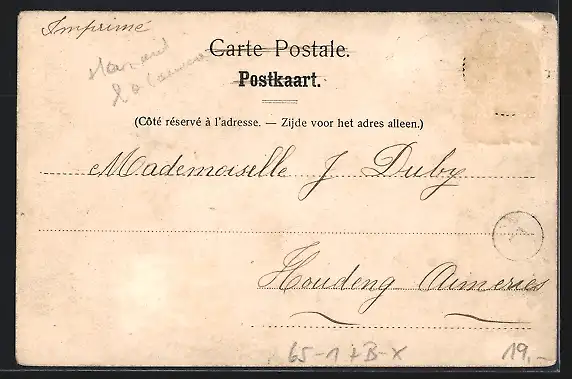 Imprimé
Carte Postale.
Postkaart.
(Côté réservé à l'adresse. — Zijde voor het adres alleen.)
Mademoiselle J Duby
Houdeng Aimeries
65-1 + B-X
19,-